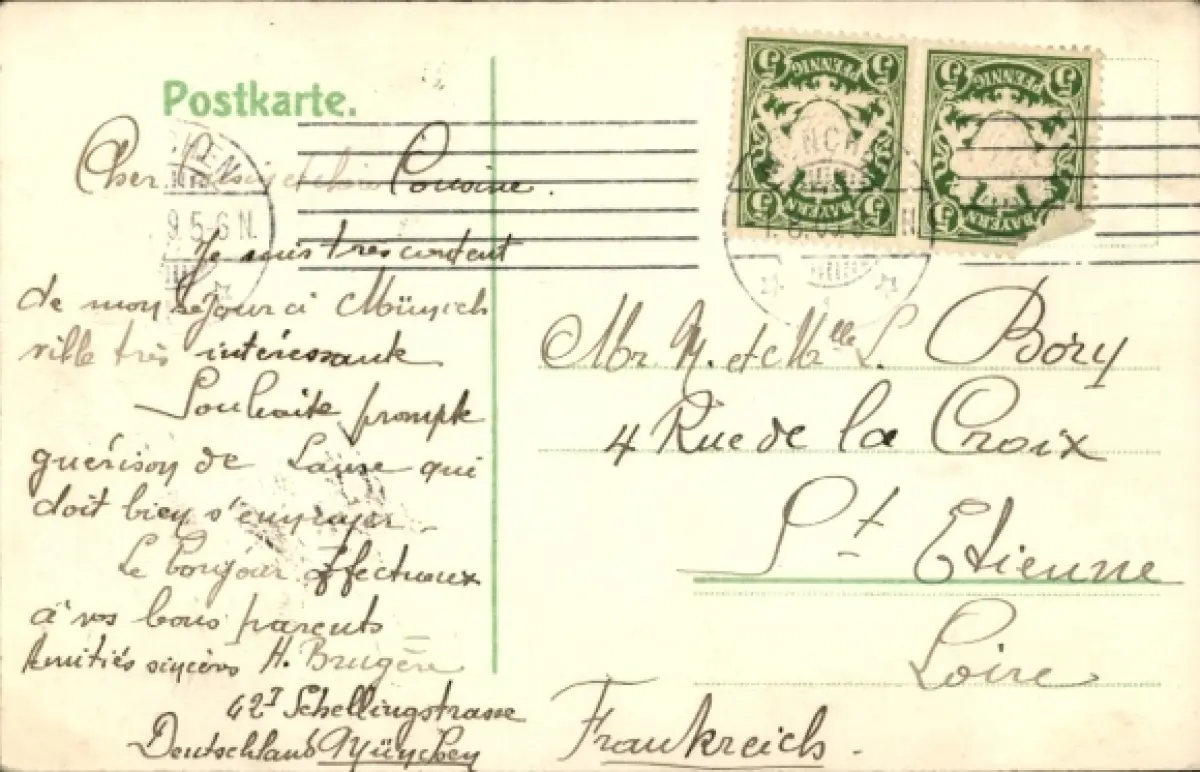 Postkarte.
Cher Cousin et chère Cousine.
Je suis très content
de mon séjour à Münich
ville très intéressante
Souhaite prompte
guérison de Laure qui
doit bien s'ennuyer
Le bonjour affectueux
à vos bons parents
Amitiés sincères H. Brugère
42 I Schellingstrasse
Deutschland München
5 PFENNIG 5
5 BAYERN 5
5 PFENNIG 5
5 BAYERN
9.5-6 N.
Mr. M. et Mlle L. Bory
4 Rue de la Croix
St Etienne
Loire
Frankreich.